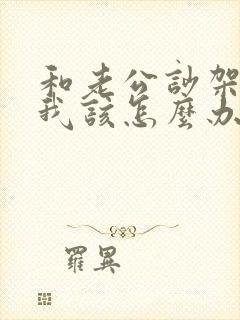 和老公訟架
我該怎麼办
羅異